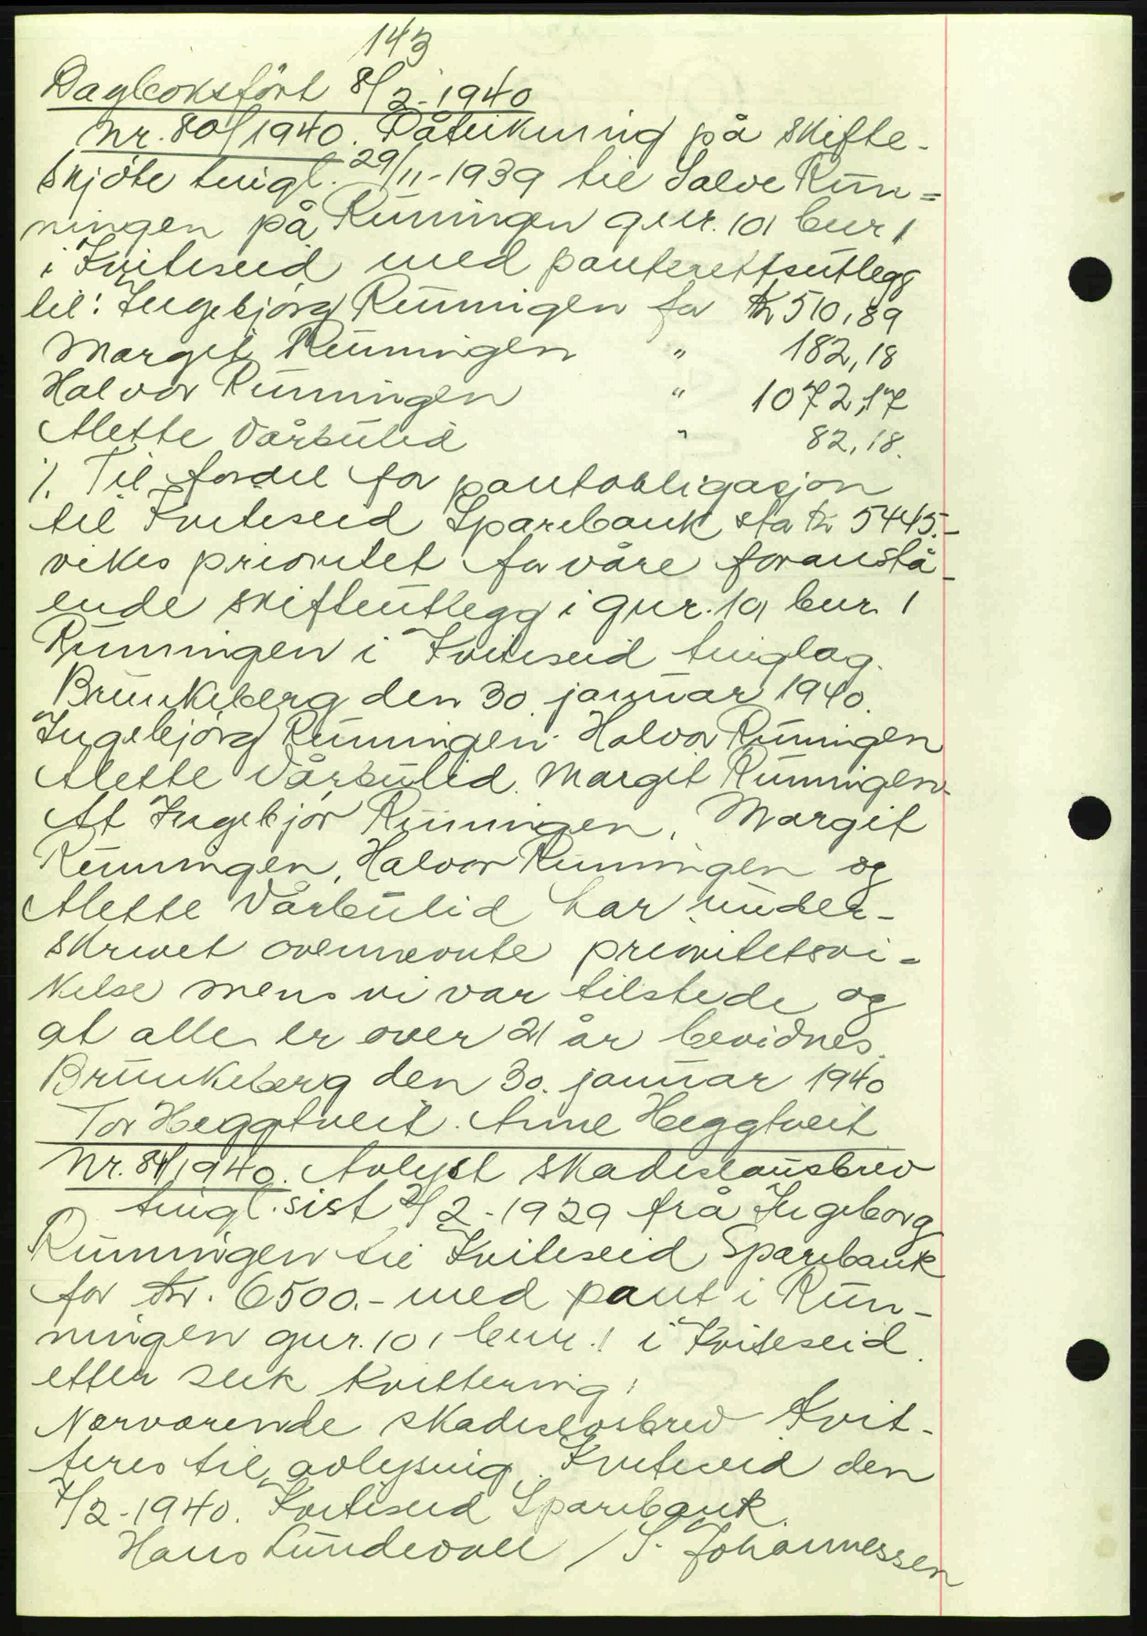 143
Dagboksført 8/2-1940
Nr. 80/1940. Påteikning på skifte-
skjöte tingl. 29/11-1939 til Salve Run=
ningen på Runingen gnr. 101 bnr 1
i Kviteseid med panterettsutlegg
til: Ingebjörg Runningen for kr 510,89
Margit Runningen " 182,18
Halvor Runningen " 1072,17
Alette Vårbulid " 82,18.
%. Til fordel for pantobligasjon
til Kviteseid Sparebank sto kr 5445.-
vikes prioritet for våre foranstå-
ende skifteutlegg i gnr. 101 bnr. 1
Runningen i Kviteseid tinglag.
Brunkeberg den 30. januar 1940.
Ingebjörg Runningen. Halvor Runingen
Alette Vårbulid. Margit Runningen.
At Ingebjör Runningen, Margit
Runningen, Halvor Runningen og
Alette Vårbulid har under-
skrivet ovennevnte prioritetsvi=
kelse mens vi var tilstede og
at alle er over 21 år bevidnes.
Brunkeberg den 30. januar 1940
Tor Heggtveit. Anne Heggtveit
Nr. 81/1940. Avlyst skadeslausbrev
tingl. sist 2/2-1929 frå Ingeborg
Runningen til Kviteseid Sparebank
for kr. 6500.- med pant i Run-
ningen gnr. 101 bnr. 1 i Kviteseid.
etter slik kvittering:
Nærværende skadeslosbrev kvit-
teres til avlysnig. Kviteseid den
7/2-1940. Kviteseid Sparebank.
Hans Lundevall / S. Johannessen